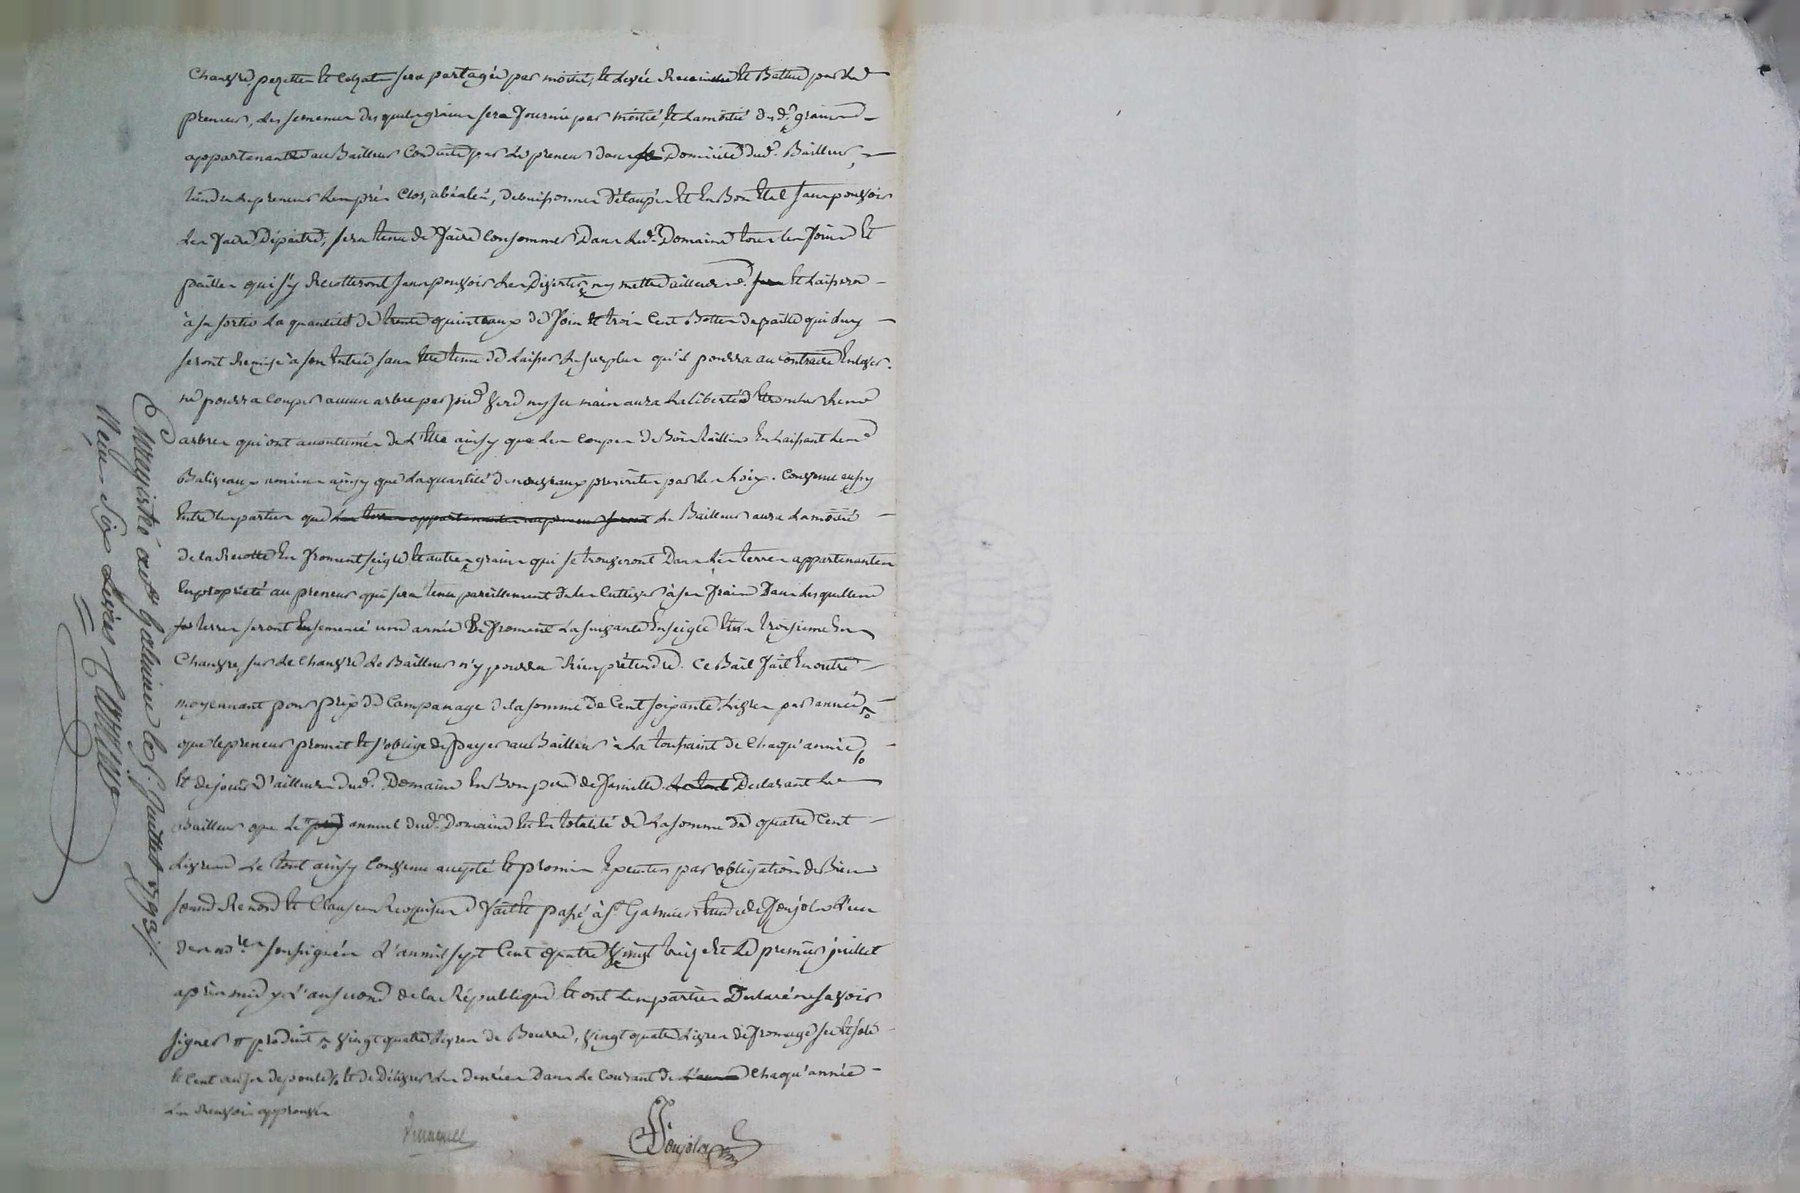 Chanvre, pezettes et colzat sera partagée par moitié, et levée Receuillie et Battue par led
preneur, les semences desquels grains sera fournie par moitié, et la moitié desd. grains
appartenante au Bailleur Conduite par le preneur dans le Domicile dud. Bailleur,
tiendra le preneur les prés Clos, abéalés, debuissonnés Détaupés et En Bon Etat sans pouvoir
Les faire Dépaitre, sera tenu de faire Consommer Dans led. Domaine tous les foins et
pailles qui s'y Recolteront sans pouvoir Les Divertir ny mettre ailleurs et Laissera
à sa sortie La quantité de trente quintaux de foin et trois Cent Bottes de paille qui luy
seront Remise à son Entrée sans être tenu de Laisser Le surplus qu'il pourra au contraire Enlever.
ne pourra Couper aucun arbre par pied verd ny sec mais aura La liberté d'Etroncher Les
arbres qui ont accoutumés de L'être ainsy que Les Coupes de Bois taillis En Laissant Les
Baliveaux anciens ainsy que La quantité de nouveaux prescrites par les Loix. Convenu aussy
Entre Les parties que les terres appartenantes au preneur seront Le Bailleur aura La moitié
de la Recolte En froment seigle et autres grains qui se trouveront Dans Les terres appartenantes
En propriété au preneur qui sera tenu pareillement de Les Cultiver à ses frais Dans Lesquelles
terres seront Ensemencé une année De froment La suivante En seigle Et la troisieme En
Chanvre, sur Le Chanvre Le Bailleur n'y pourra Rien prétendre. Ce Bail fait En outre
moyennant pour prix de Campanage de la somme De Cent soixante Livres par année
que le preneur promet et s'oblige de payer au Bailleur à La toussaint de Chaqu'année
et de jouir D'ailleurs dud. Domaine En Bon pere de famille. Le tout Declarant Le
Bailleur que Le annuel dud. Domaine Est En totalité de La somme de quatre Cent
Livres Le tout ainsy Convenu accepté et promis Executer par obligation de Biens
soumis Renond. et Clauses Requises fait et passé à St Galmier Etude de Ponjols L'un
des nores soussignés L'an mil sept Cent quatre vingt treize et Le premier juillet
après midy L'an second de la République et ont Les parties Declaré ne savoir
signer produit vingt quatre Livres de Beurre, vingt quatre Livres de fromage
et Cent œufs de poule et de Délivrer Les denrées Dans Le Courant de L'année Chaqu'année
Les Renvois approuvés
Ponjols
Enregistré à St Galmier le 5 Juillet 1793.
Reçu Six Livres